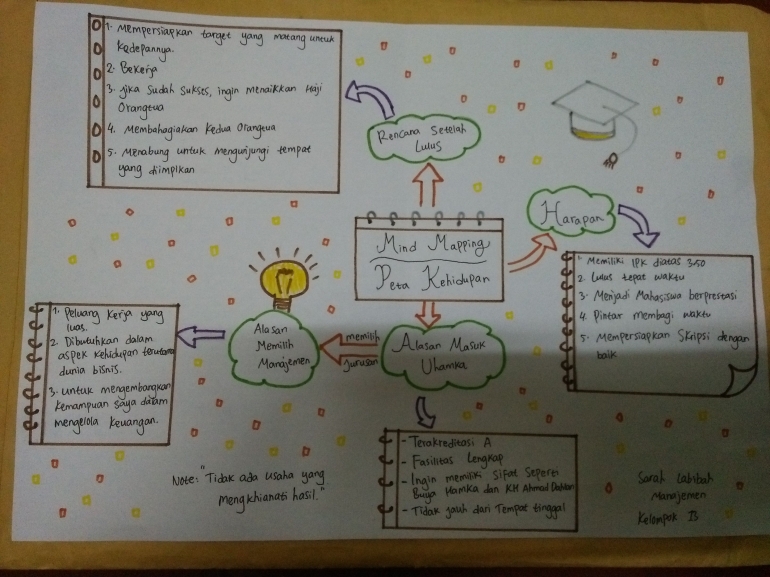 1. Mempersiapkan target yang matang untuk
kedepannya.
2. Bekerja
3. Jika sudah sukses, ingin menaikkan Haji
Orangtua
4. Membahagiakan kedua orangtua
5. Menabung untuk mengunjungi tempat
yang diimpikan
Rencana Setelah
Lulus
Harapan
1. Memiliki IPK diatas 3.50
2. Lulus tepat waktu
3. Menjadi Mahasiswa berprestasi
4. Pintar membagi waktu
5. Mempersiapkan Skripsi dengan
baik
Mind Mapping
Peta Kehidupan
Alasan Masuk
Uhamka
memilih
jurusan
Alasan
Memilih
Manajemen
1. Peluang kerja yang
luas.
2. Dibutuhkan dalam
aspek kehidupan terutama
dunia bisnis.
3. untuk mengembangkan
kemampuan saya dalam
mengelola keuangan.
- Terakreditasi A
- Fasilitas Lengkap
- Ingin memiliki Sifat Seperti
Buya Hamka dan KH Ahmad Dahlan
- Tidak jauh dari Tempat tinggal
Note: "Tidak ada usaha yang
mengkhianati hasil."
Sarah Labibah
Manajemen
Kelompok 13